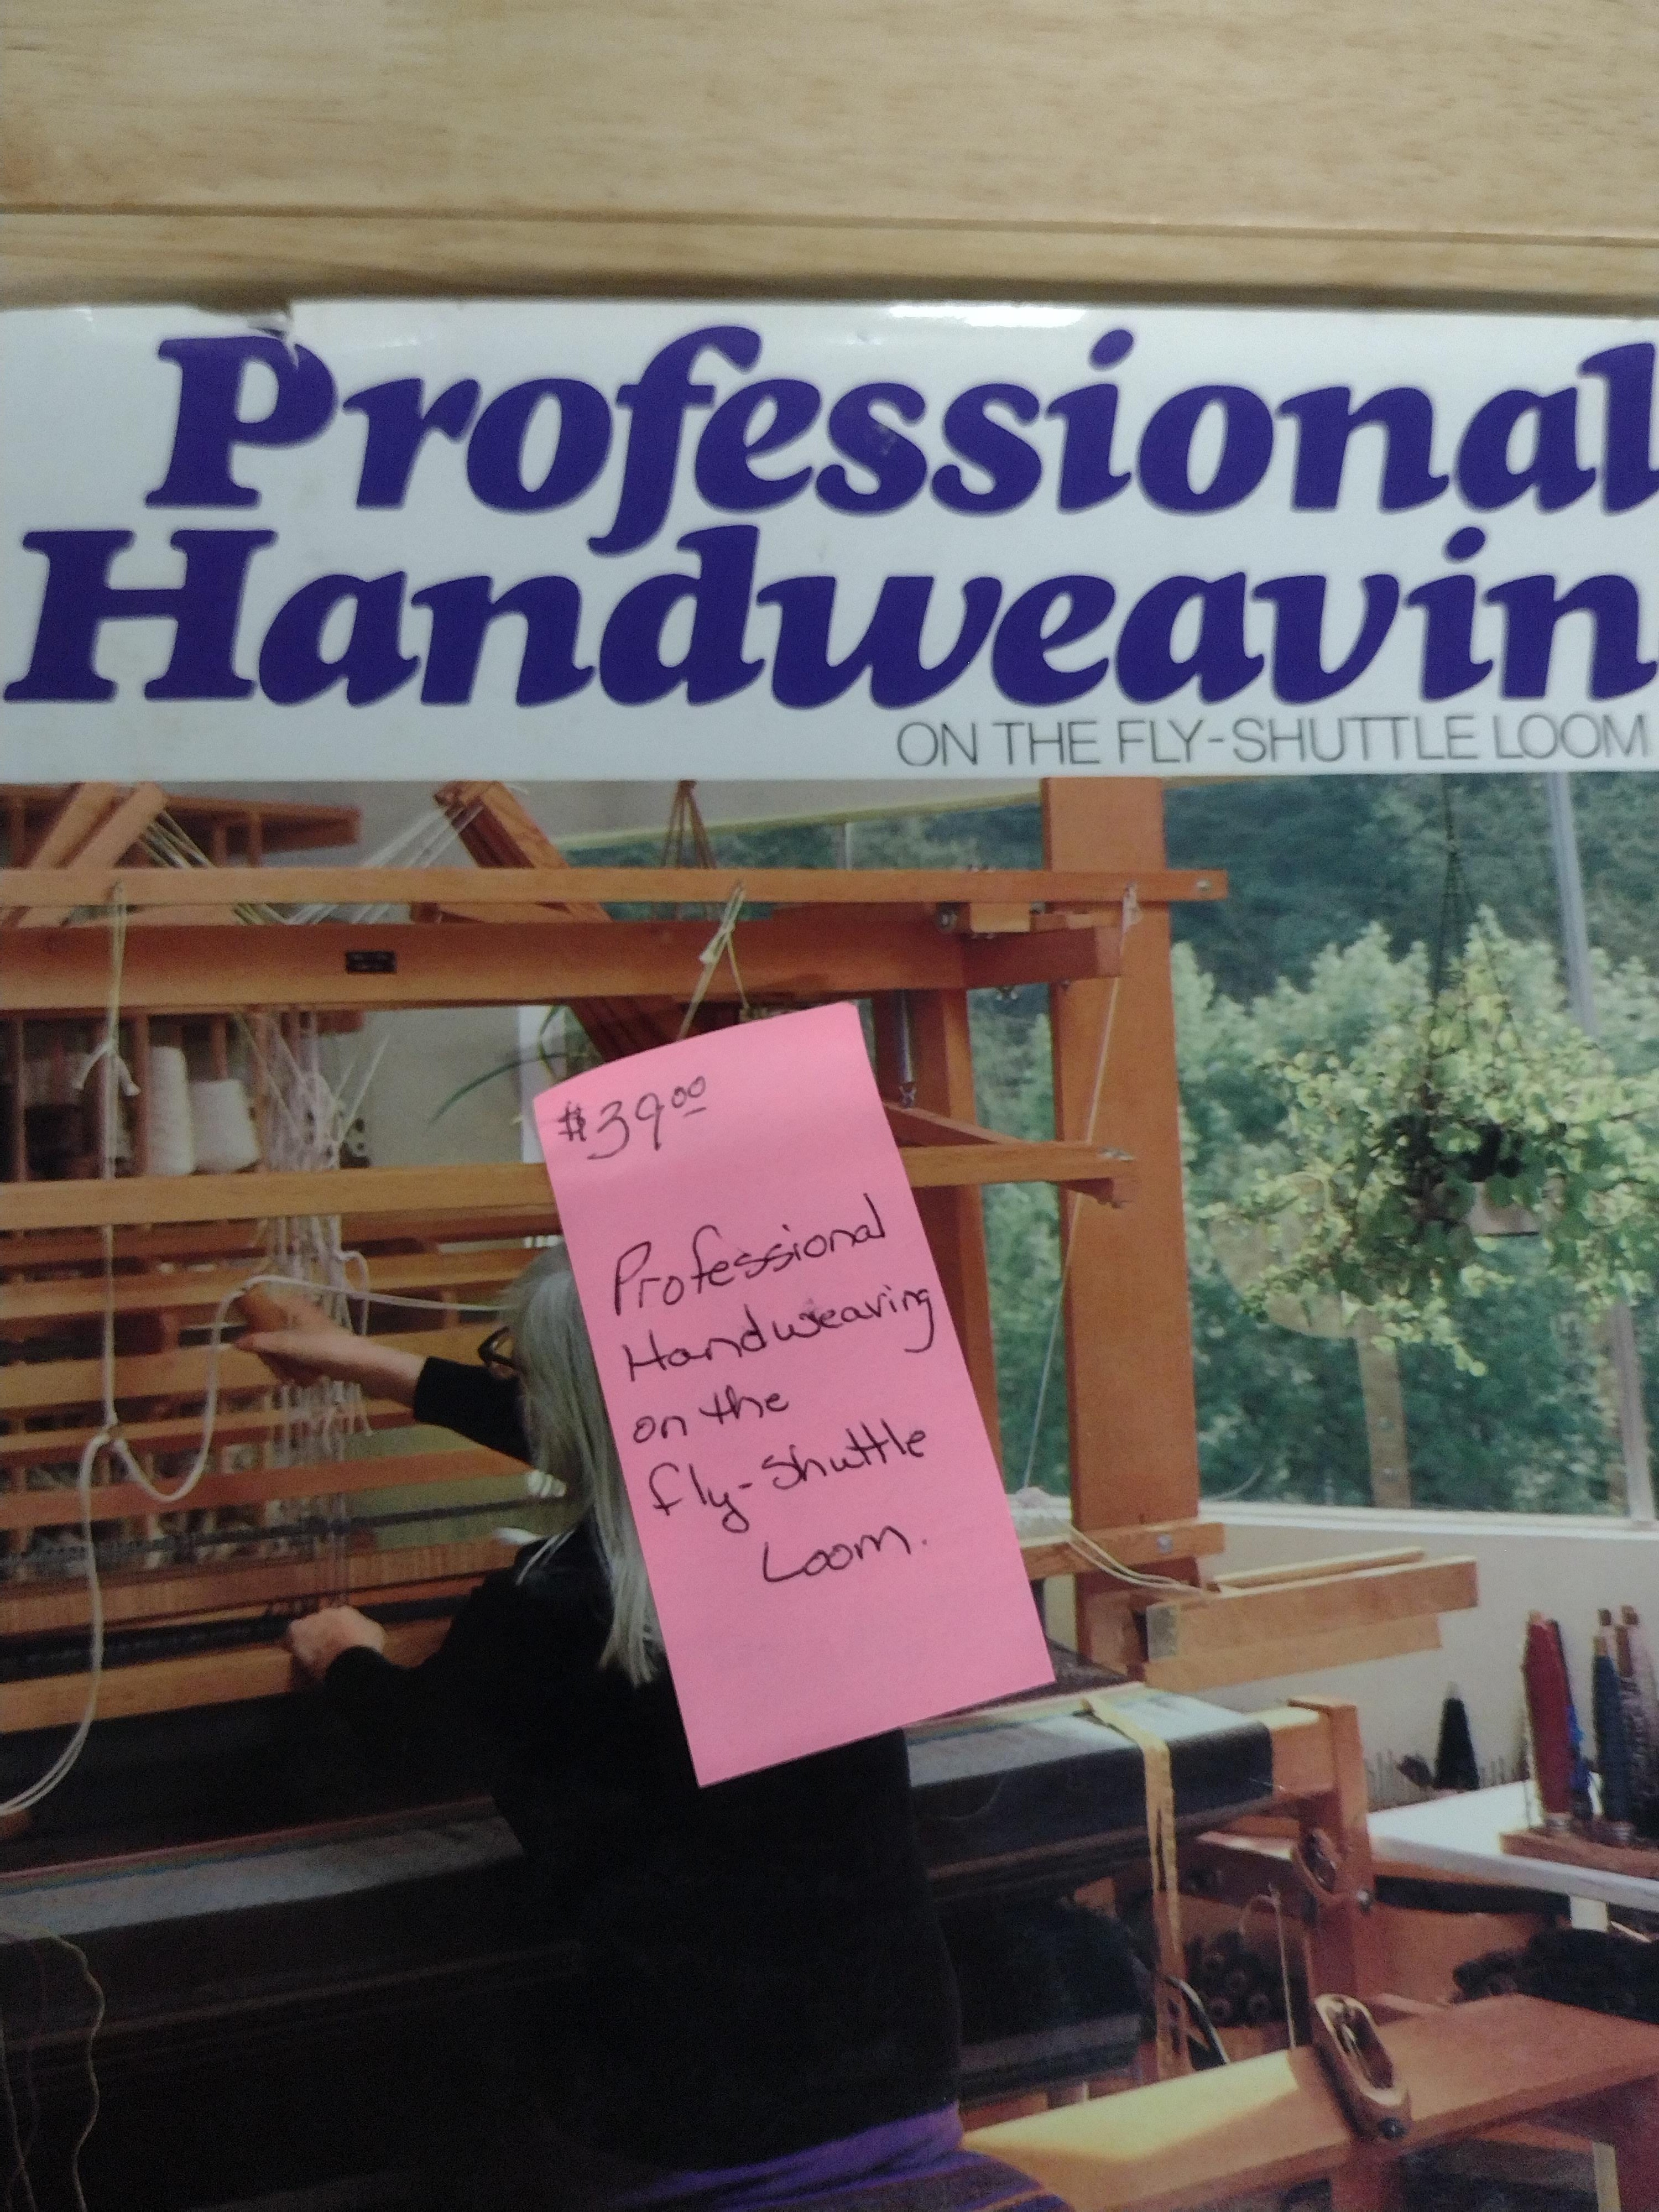 Professional
Handweavin
ON THE FLY-SHUTTLE LOOM
$39.00
Professional
Handweaving
on the
fly-shuttle
Loom.